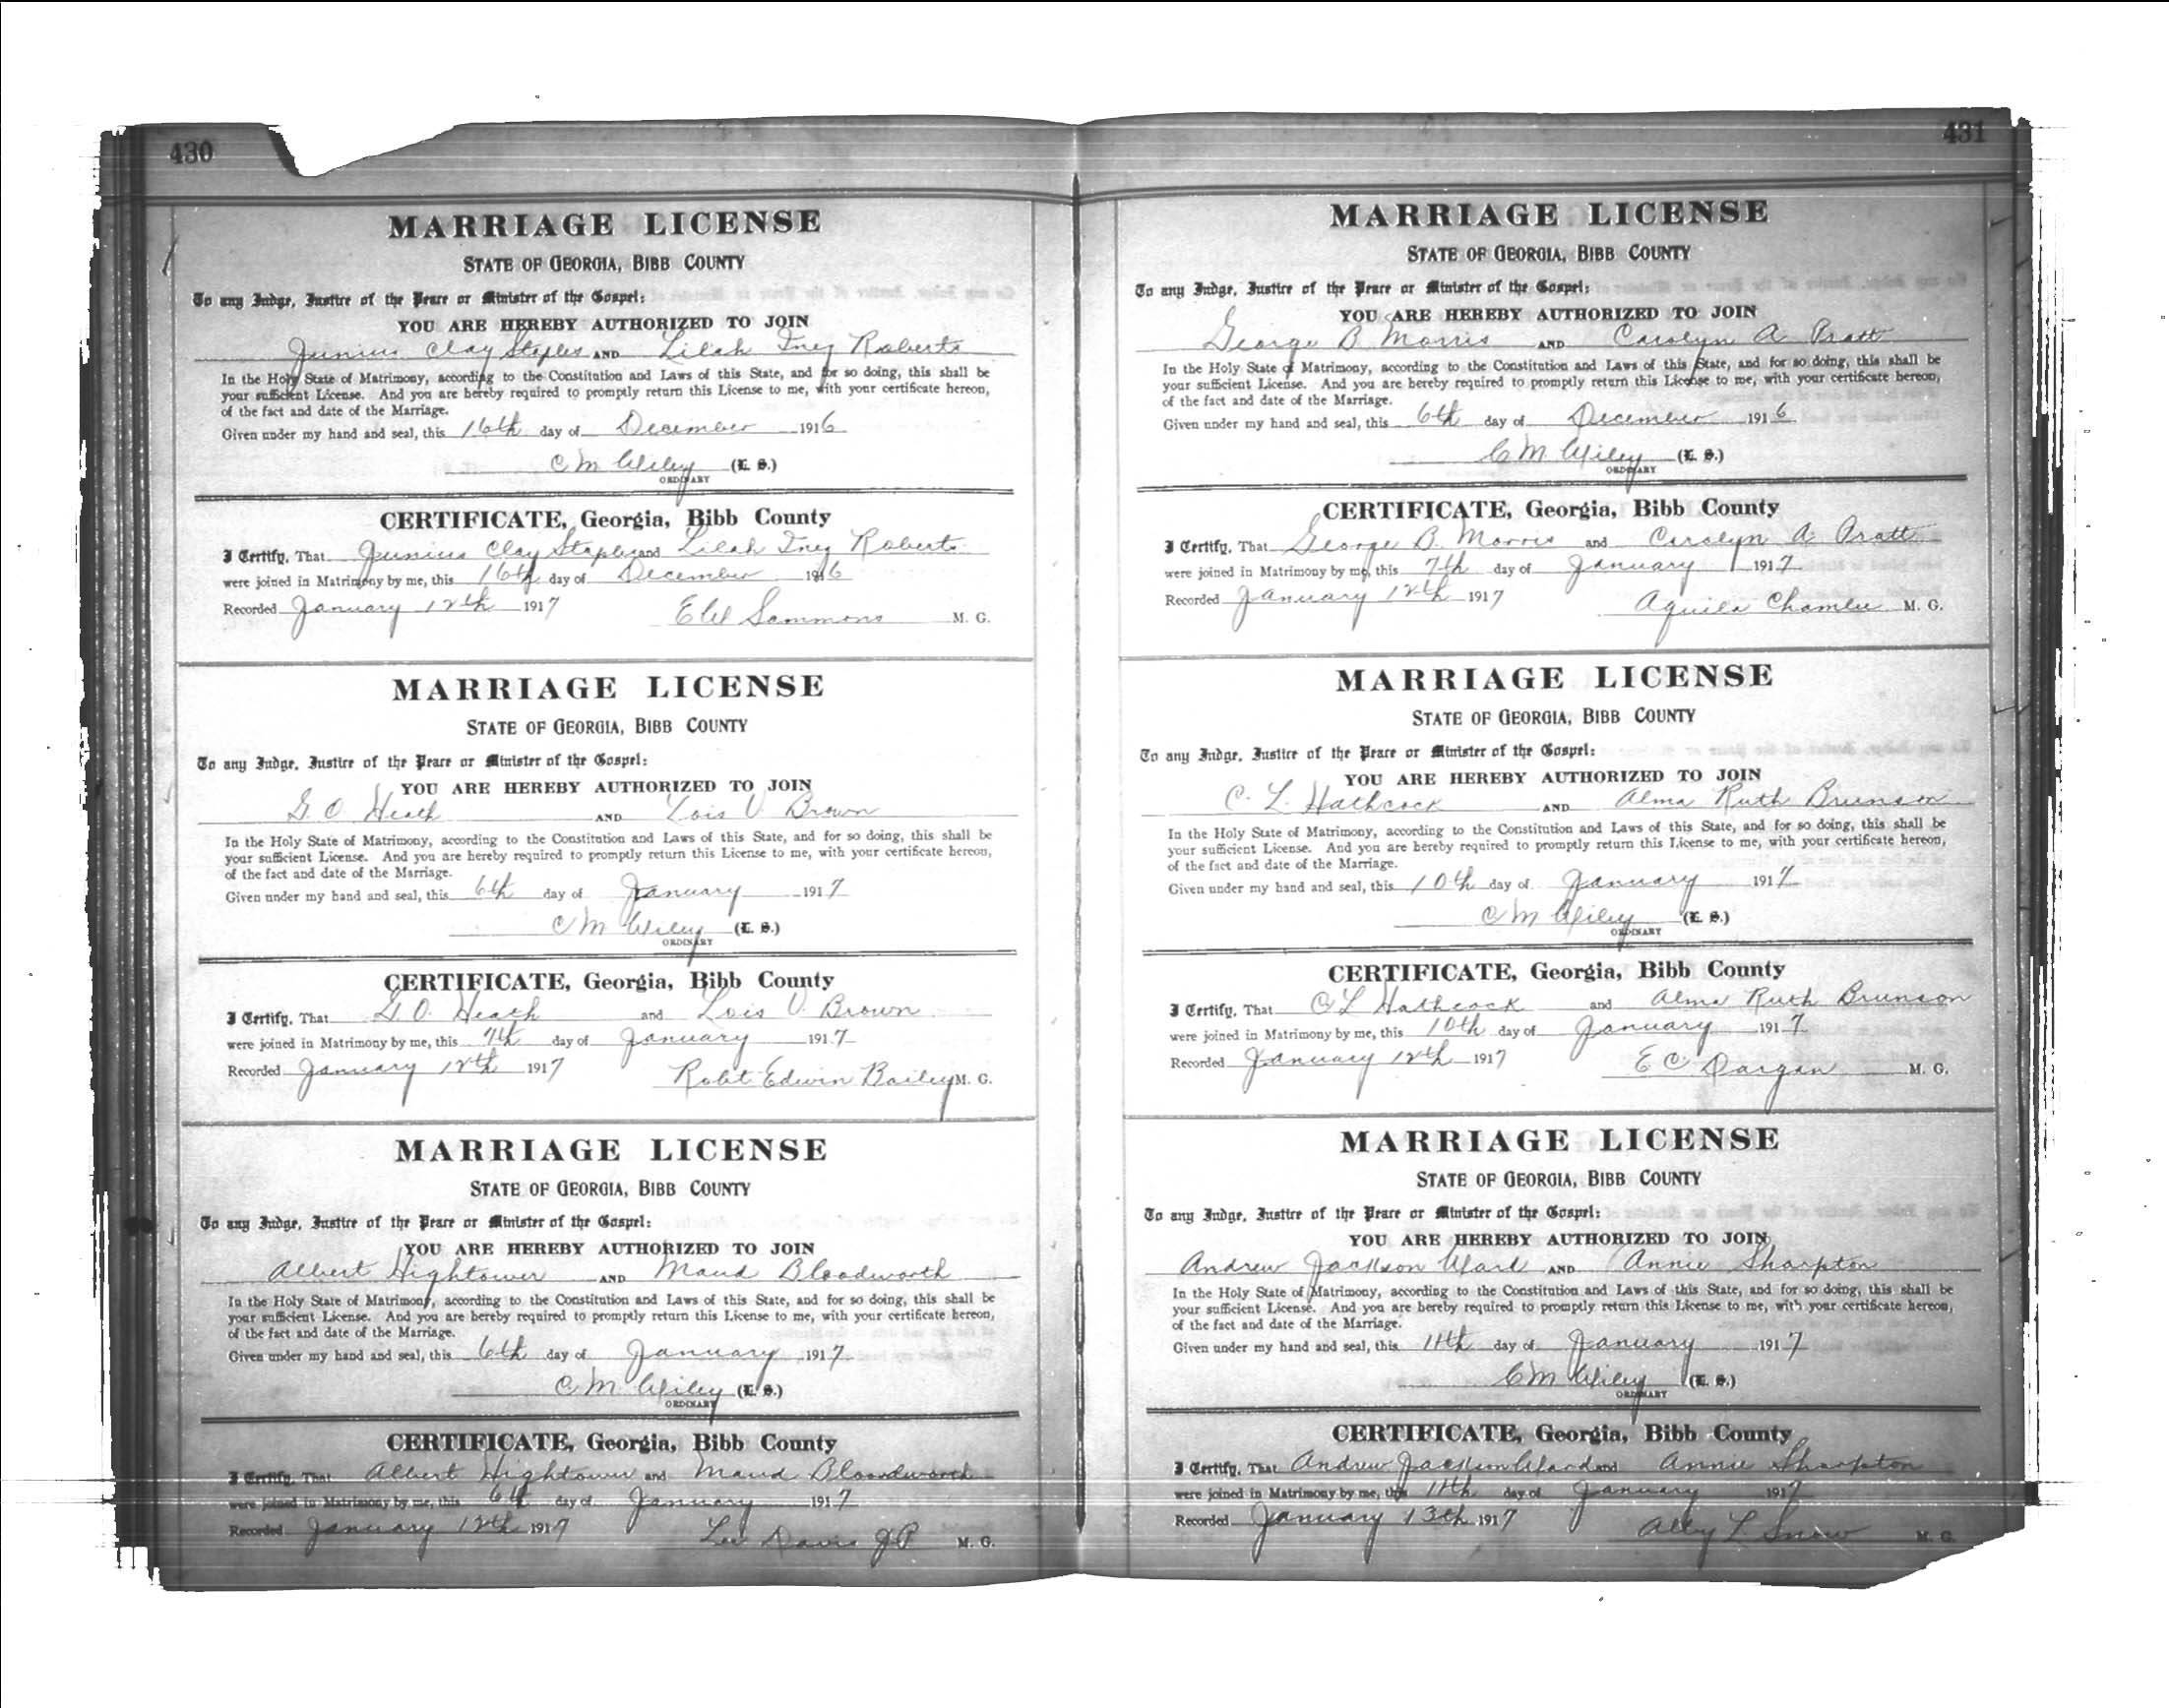 430
MARRIAGE LICENSE
STATE OF GEORGIA, BIBB COUNTY
To any Judge, Justice of the Peace or Minister of the Gospel:
YOU ARE HEREBY AUTHORIZED TO JOIN
Junius Clay Staples AND Lilah Inez Roberts
In the Holy State of Matrimony, according to the Constitution and Laws of this State, and for so doing, this shall be
your sufficient License. And you are hereby required to promptly return this License to me, with your certificate hereon,
of the fact and date of the Marriage.
Given under my hand and seal, this 16th day of December 1916
C M Wiley (L. S.)
ORDINARY
CERTIFICATE, Georgia, Bibb County
I Certify, That Junius Clay Staples and Lilah Inez Roberts
were joined in Matrimony by me, this 16th day of December 1916
Recorded January 12th 1917
Sammons M. G.
MARRIAGE LICENSE
STATE OF GEORGIA, BIBB COUNTY
To any Judge, Justice of the Peace or Minister of the Gospel:
YOU ARE HEREBY AUTHORIZED TO JOIN
G. O. Heath AND Lois V Brown
In the Holy State of Matrimony, according to the Constitution and Laws of this State, and for so doing, this shall be
your sufficient License. And you are hereby required to promptly return this License to me, with your certificate hereon,
of the fact and date of the Marriage.
Given under my hand and seal, this 6th day of January 1917
C M Wiley (L. S.)
ORDINARY
CERTIFICATE, Georgia, Bibb County
I Certify, That G. O. Heath and Lois V. Brown
were joined in Matrimony by me, this 7th day of January 1917
Recorded January 12th 1917
Robt Edwin Bailey M. G.
MARRIAGE LICENSE
STATE OF GEORGIA, BIBB COUNTY
To any Judge, Justice of the Peace or Minister of the Gospel:
YOU ARE HEREBY AUTHORIZED TO JOIN
Albert Hightower AND Maud Bloodworth
In the Holy State of Matrimony, according to the Constitution and Laws of this State, and for so doing, this shall be
your sufficient License. And you are hereby required to promptly return this License to me, with your certificate hereon,
of the fact and date of the Marriage.
Given under my hand and seal, this 6th day of January 1917
C M Wiley (L. S.)
ORDINARY
CERTIFICATE, Georgia, Bibb County
I Certify, That Albert Hightower and Maud Bloodworth
were joined in Matrimony by me, this 6th day of January 1917
Recorded January 12th 1917
Lee Davis J P M. G.
431
MARRIAGE LICENSE
STATE OF GEORGIA, BIBB COUNTY
To any Judge, Justice of the Peace or Minister of the Gospel:
YOU ARE HEREBY AUTHORIZED TO JOIN
George B Morris AND Carolyn A Pratt
In the Holy State of Matrimony, according to the Constitution and Laws of this State, and for so doing, this shall be
your sufficient License. And you are hereby required to promptly return this License to me, with your certificate hereon,
of the fact and date of the Marriage.
Given under my hand and seal, this 6th day of December 1916
C M Wiley (L. S.)
ORDINARY
CERTIFICATE, Georgia, Bibb County
I Certify, That George B. Morris and Carolyn A Pratt
were joined in Matrimony by me, this 7th day of January 1917
Recorded January 12th 1917
Aquila Chamlee M. G.
MARRIAGE LICENSE
STATE OF GEORGIA, BIBB COUNTY
To any Judge, Justice of the Peace or Minister of the Gospel:
YOU ARE HEREBY AUTHORIZED TO JOIN
C. L. Hathcock AND Alma Ruth Brunson
In the Holy State of Matrimony, according to the Constitution and Laws of this State, and for so doing, this shall be
your sufficient License. And you are hereby required to promptly return this License to me, with your certificate hereon,
of the fact and date of the Marriage.
Given under my hand and seal, this 10th day of January 1917
C M Wiley (L. S.)
ORDINARY
CERTIFICATE, Georgia, Bibb County
I Certify, That C L Hathcock and Alma Ruth Brunson
were joined in Matrimony by me, this 10th day of January 1917
Recorded January 12th 1917
E C Dargan M. G.
MARRIAGE LICENSE
STATE OF GEORGIA, BIBB COUNTY
To any Judge, Justice of the Peace or Minister of the Gospel:
YOU ARE HEREBY AUTHORIZED TO JOIN
Andrew Jackson Ward AND Annie Sharpton
In the Holy State of Matrimony, according to the Constitution and Laws of this State, and for so doing, this shall be
your sufficient License. And you are hereby required to promptly return this License to me, with your certificate hereon,
of the fact and date of the Marriage.
Given under my hand and seal, this 11th day of January 1917
C M Wiley (L. S.)
ORDINARY
CERTIFICATE, Georgia, Bibb County
I Certify, That Andrew Jackson Ward and Annie Sharpton
were joined in Matrimony by me, this 11th day of January 1917
Recorded January 13th 1917
L Snow M. G.